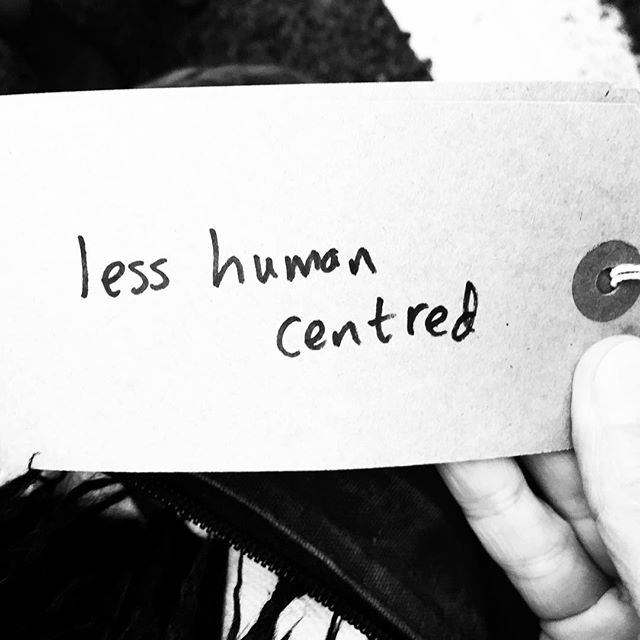 less human
centred